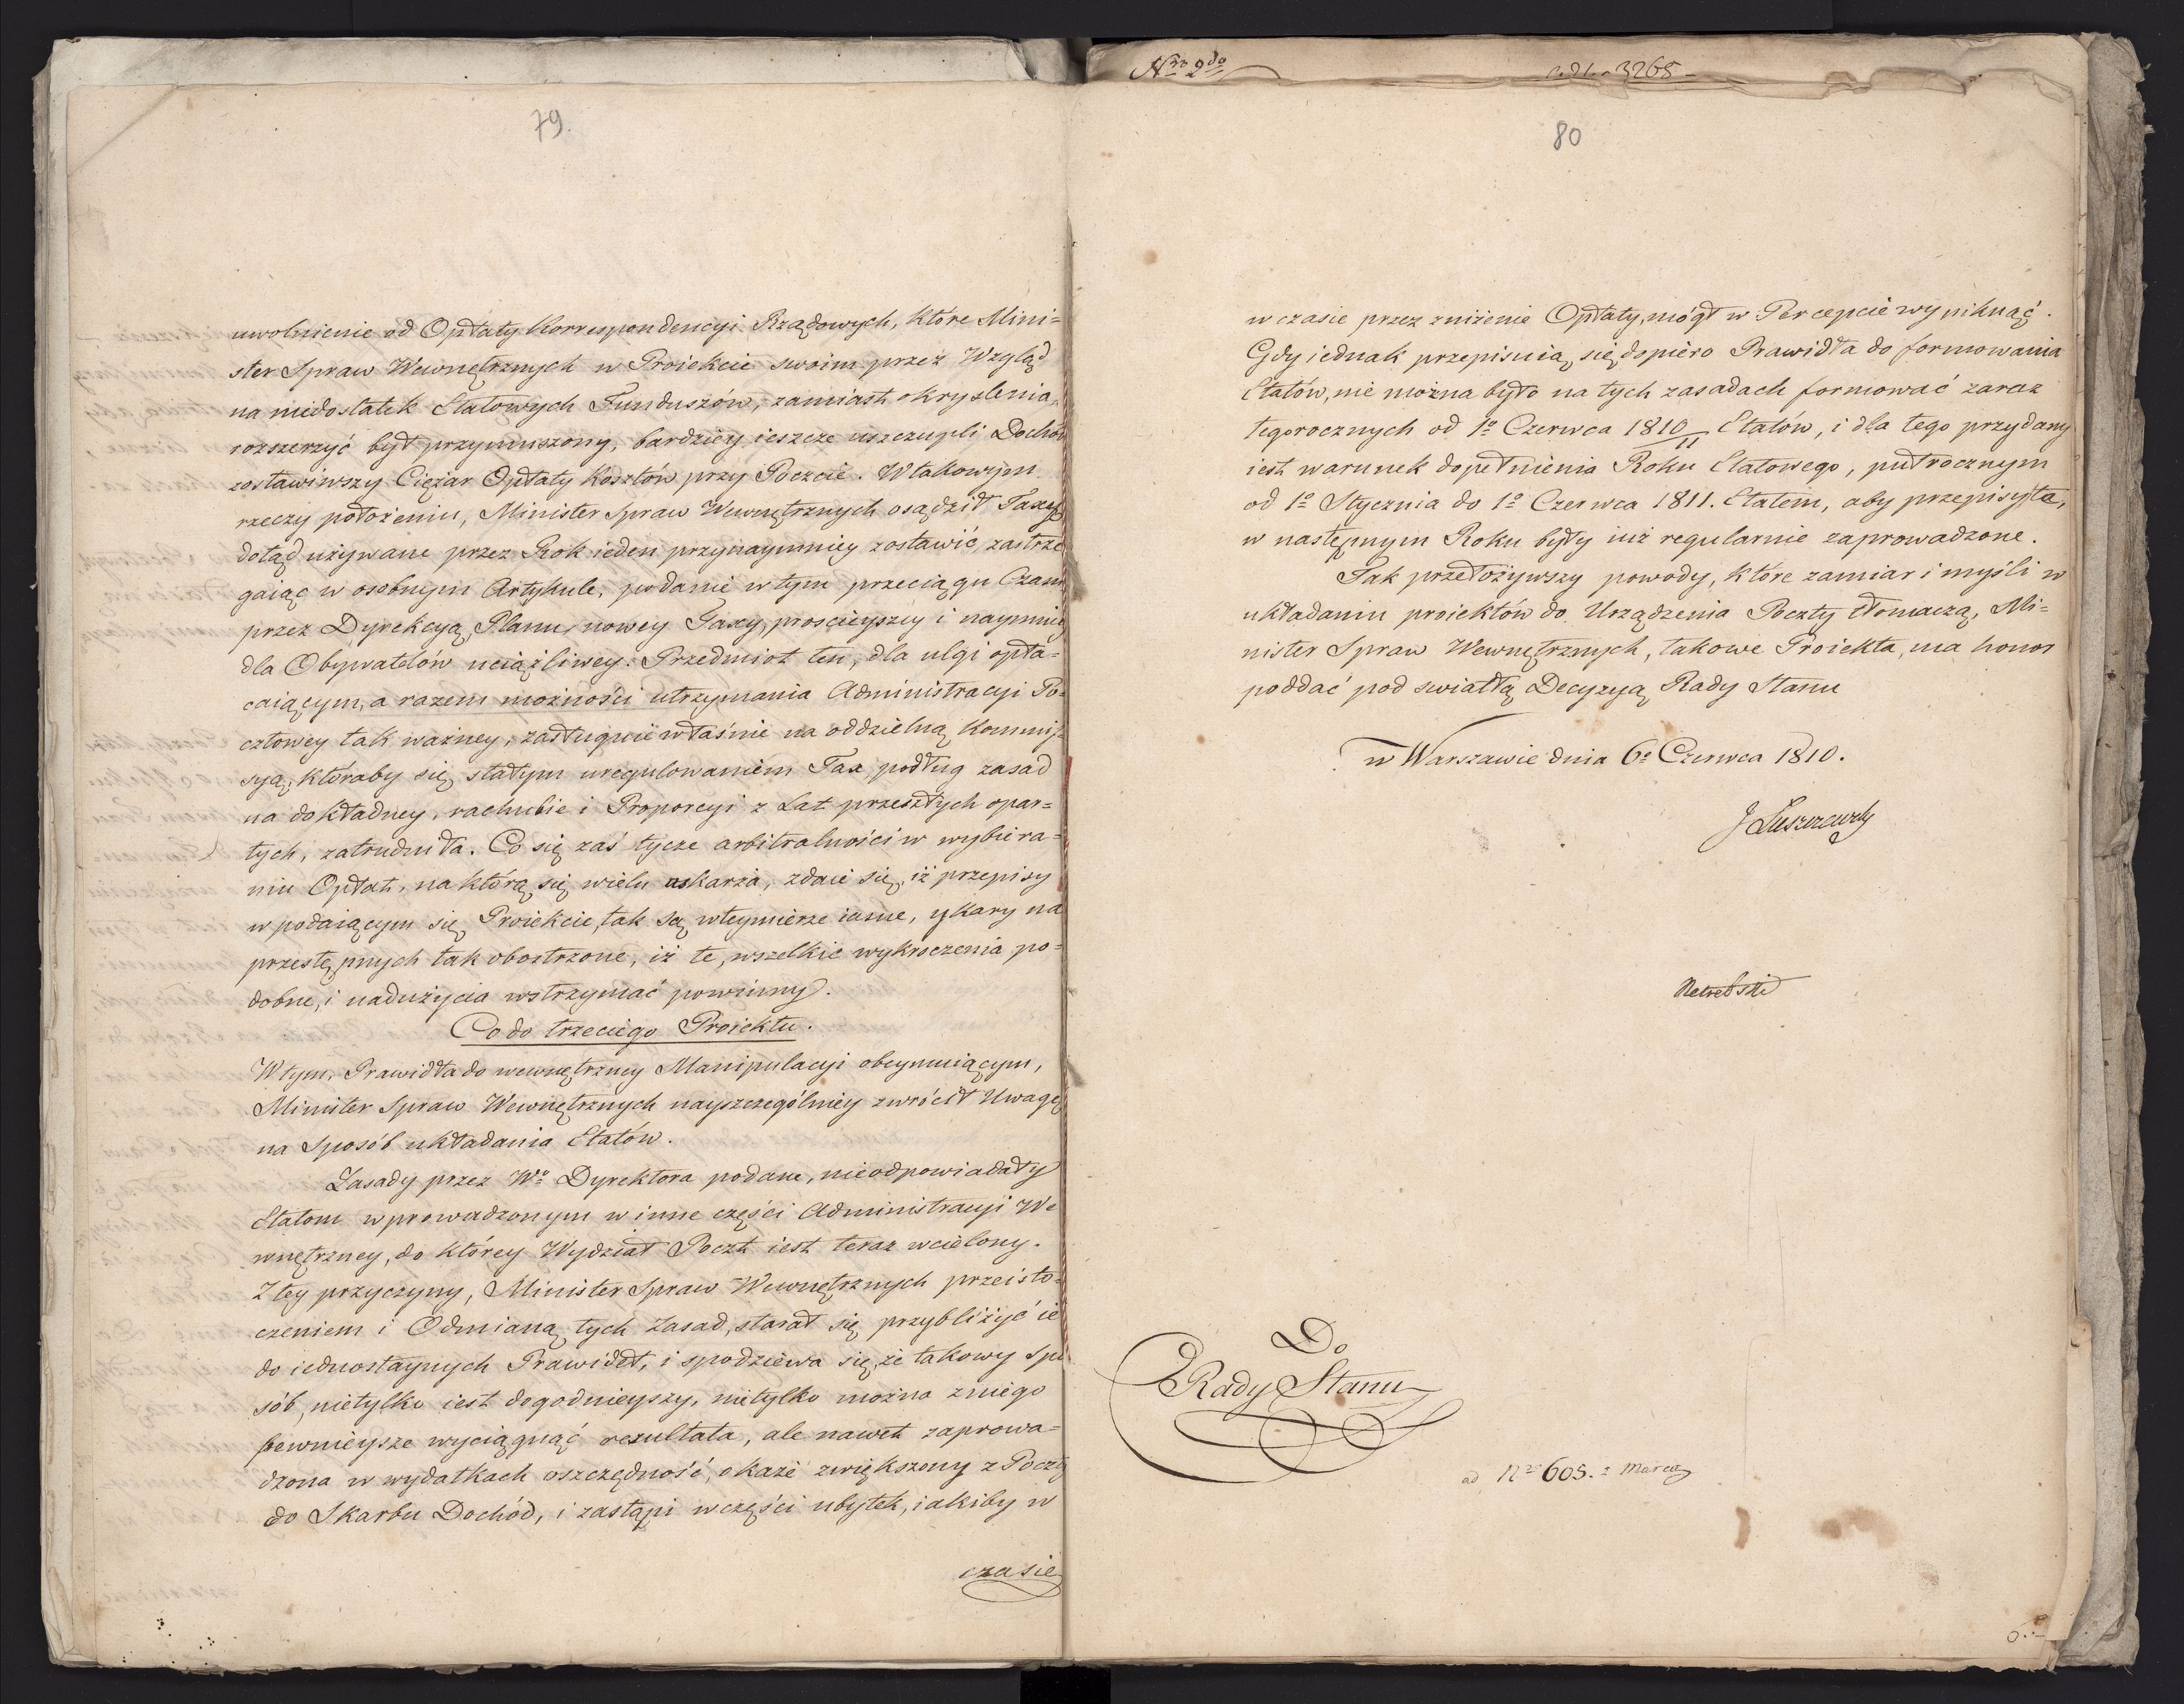 79.
uwolnienie od Opłaty Korrespondencyi Rządowych, które Mini=
ster Spraw Wewnętrznych w Proiekcie swoim przez Wzgląd
na niedostatek Etatowych Funduszów, zamiast okryslenia,
rozszerzyć był przymuszony, bardziey ieszcze uszczupli Dochód
zostawiwszy Ciężar Opłaty Kosztów przy Poczcie. W takowym
rzeczy położeniu, Minister Spraw Wewnętrznych osądził Taxę
dotąd używane przez Rok ieden przynaymniey zostawić, zastrze
gaiąc w osobnym Artykule, podanie w tym przeciągu Czasu
przez Dyrekcyą, Planu nowey Taxy, prościeyszey i naymniey
dla Obywatelów uciążliwey. Przedmiot ten, dla ulgi opła=
caiącym, a razem możności utrzymania Administracyi Po=
cztowey tak ważney, zasługuie właśnie na oddzielną Kommis=
syą, któraby się stałym uregulowaniem Tax, podług zasad
na dokładney, rachubie i Proporcyi z Lat przeszłych opar=
tych, zatrudniła. Co się zaś tycze arbitralności w wybiera=
niu Opłat, na którą się wielu uskarża, zdaie się, iż przepisy
w podaiącym się Proiekcie, tak są wteymierze iasne, y Kary na
przestępnych tak obostrzone, iż te, wszelkie wykroczenia po=
dobne, i nadużycia wstrzymać powinny.
Co do trzeciego Proiektu.
W tym, Prawidła do wewnętrzney Manipulacyi obeymuiącym,
Minister Spraw Wewnętrznych nayszczególniey zwrócił Uwagę
na Sposób układania Etatów.
Zasady przez Wo Dyrektora podane, nieodpowiadały
Etatom wprowadzonym w inne części Administracyi We
wnętrzney, do którey Wydział Poczt iest teraz wcielony.
Z tey przyczyny, Minister Spraw Wewnętrznych przeisto=
czeniem i Odmianą tych Zasad, starał się przybliżyć ie
do iednostaynych Prawideł, i spodziewa się, że takowy Spo
sób, nietylko iest dogodnieyszy, nietylko można zniego
pewnieysze wyciągnąć rezultata, ale nawet zaprowa=
dzona w wydatkach oszczędność, okaże zwiększony z Poczty
do Skarbu Dochód, i zastąpi wczęści ubytek, iakiby w
czasie
Nro 2do
3265
80
w czasie przez zniżenie Opłaty, mógł w Percepcie wyniknąć.
Gdy iednak przepisuią się dopiero Prawidła do formowania
Etatów, nie można było na tych zasadach formować zaraz
tegorocznych od 1o Czerwca 1810/11 Etatów, i dla tego przydany
iest warunek dopełnienia Roku Etatowego, pułrocznym
od 1o Stycznia do 1o Czerwca 1811. Etatem, aby przepisy te,
w następnym Roku były iuż regularnie zaprowadzone.
Tak przełożywszy powody, które zamiar i myśli w
układaniu proiektów do Urządzenia Poczty tłomaczą, Mi=
nister Spraw Wewnętrznych, takowe Proiekta, ma honor
poddać pod swiatłą Decyzyą Rady Stanu
w Warszawie dnia 6o Czerwca 1810.
J Łuszczewsky
Do
Rady Stanu
ad Nro 605. z Marca